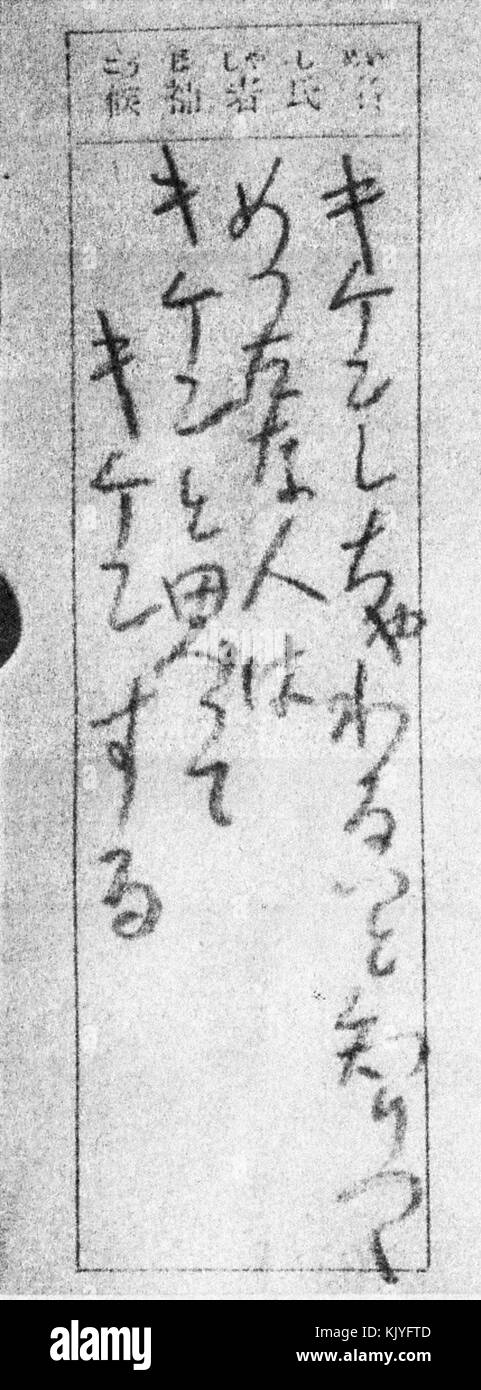 こう ほ しや し めい
候補者氏名
キケンしちゃわるいと知りつつ
めつたな人は
キケンと思って
キケンする
alamy
Image ID: KJYFTD
www.alamy.com